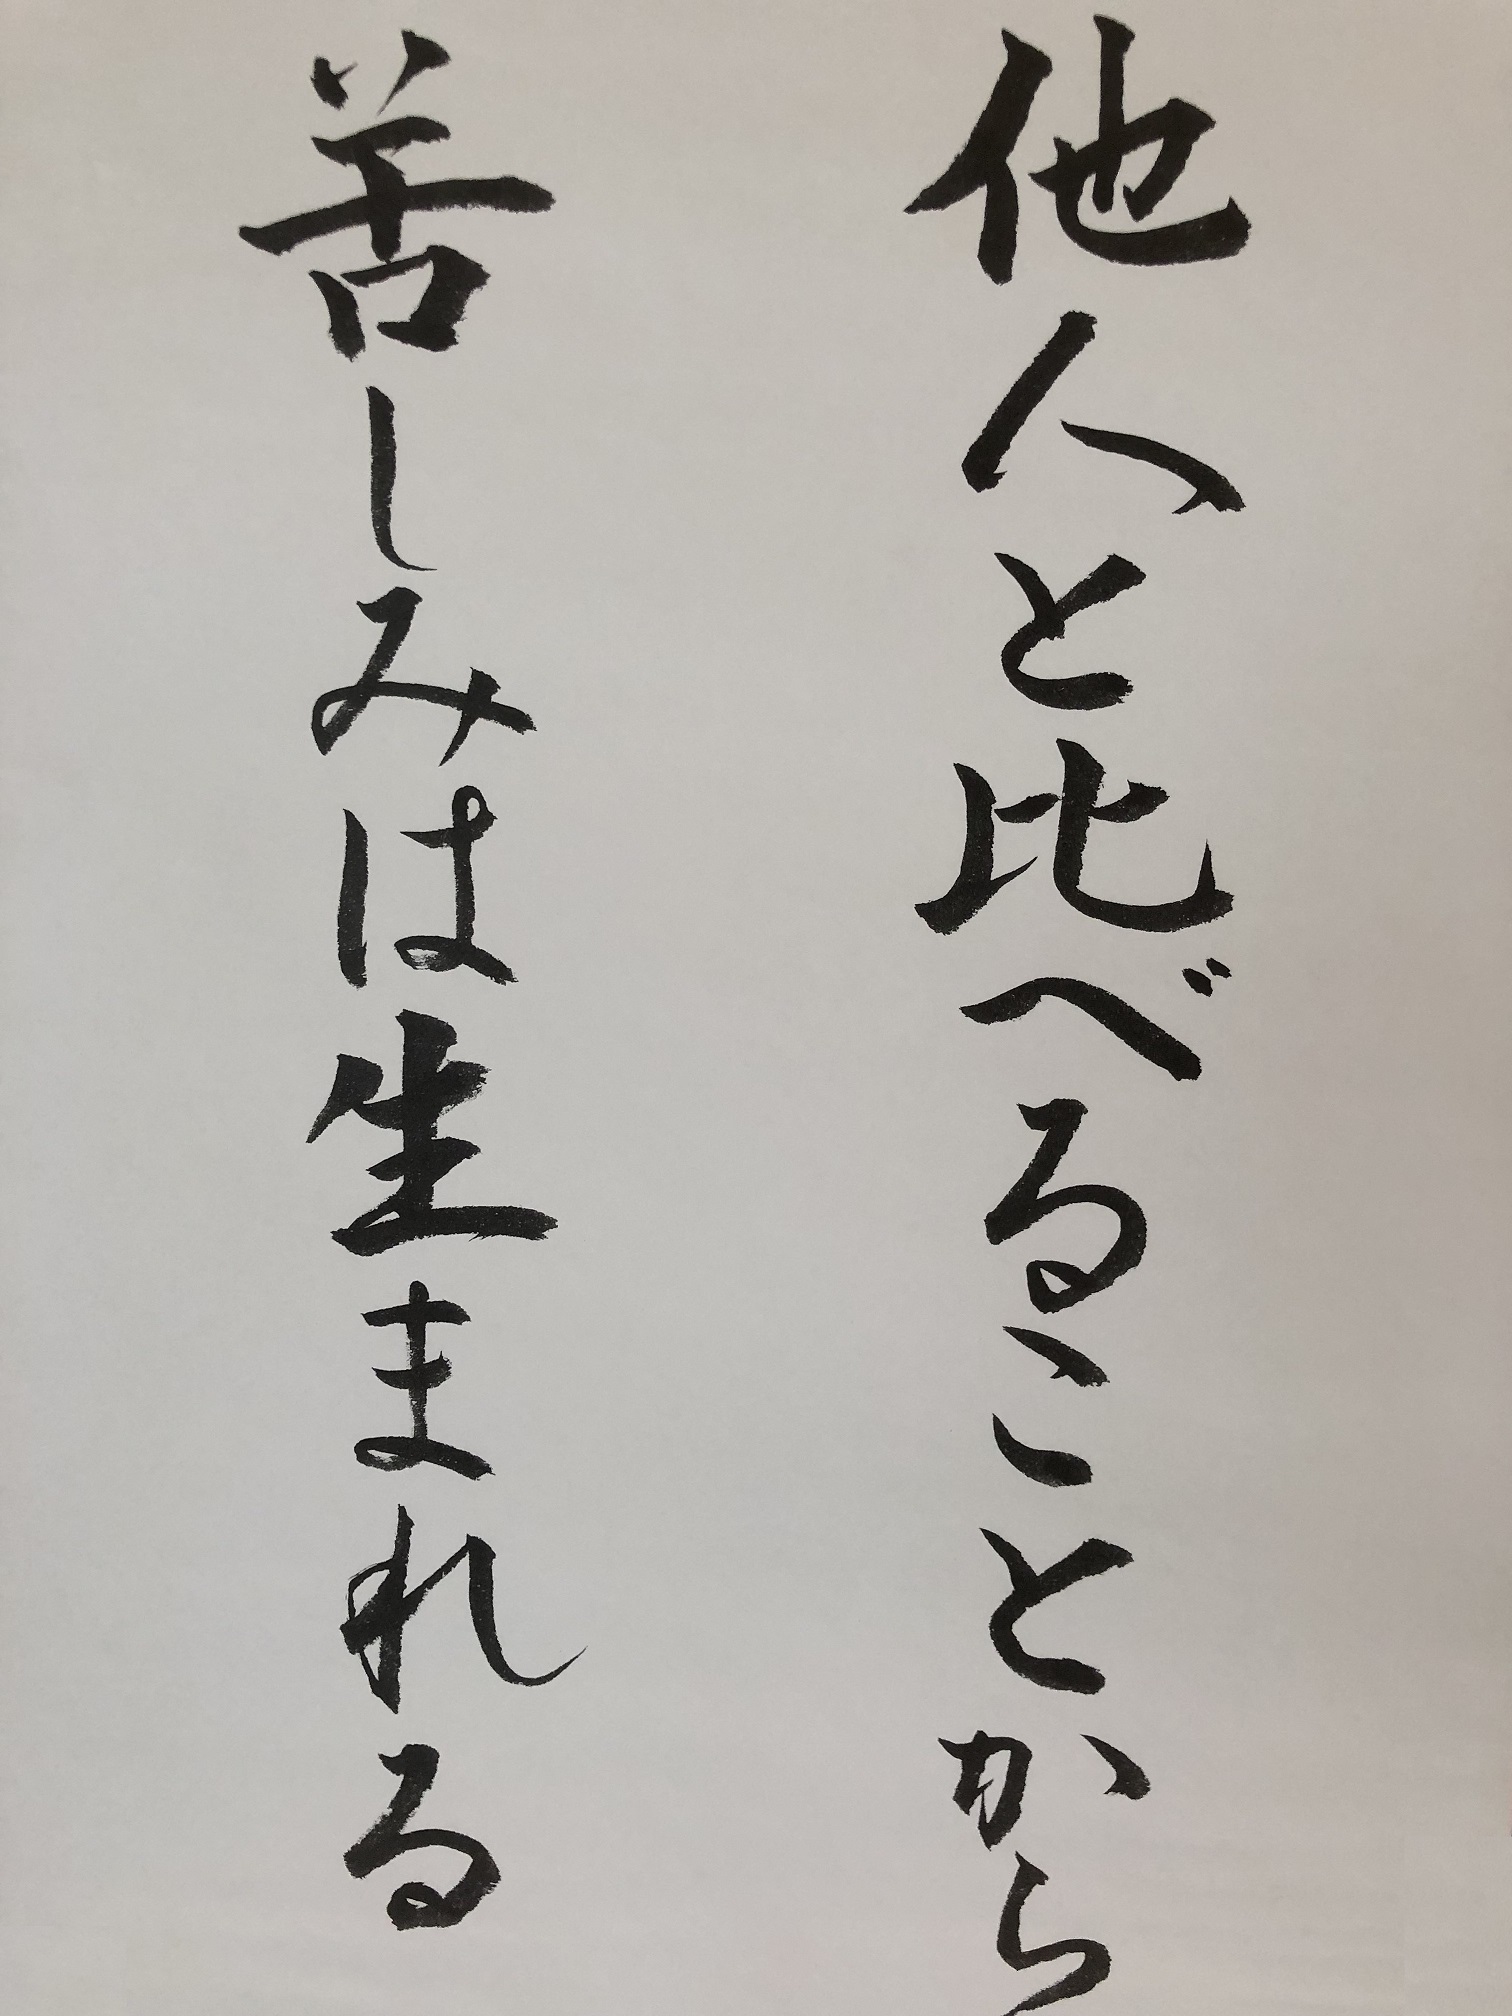 他人と比べることから
苦しみは生まれる